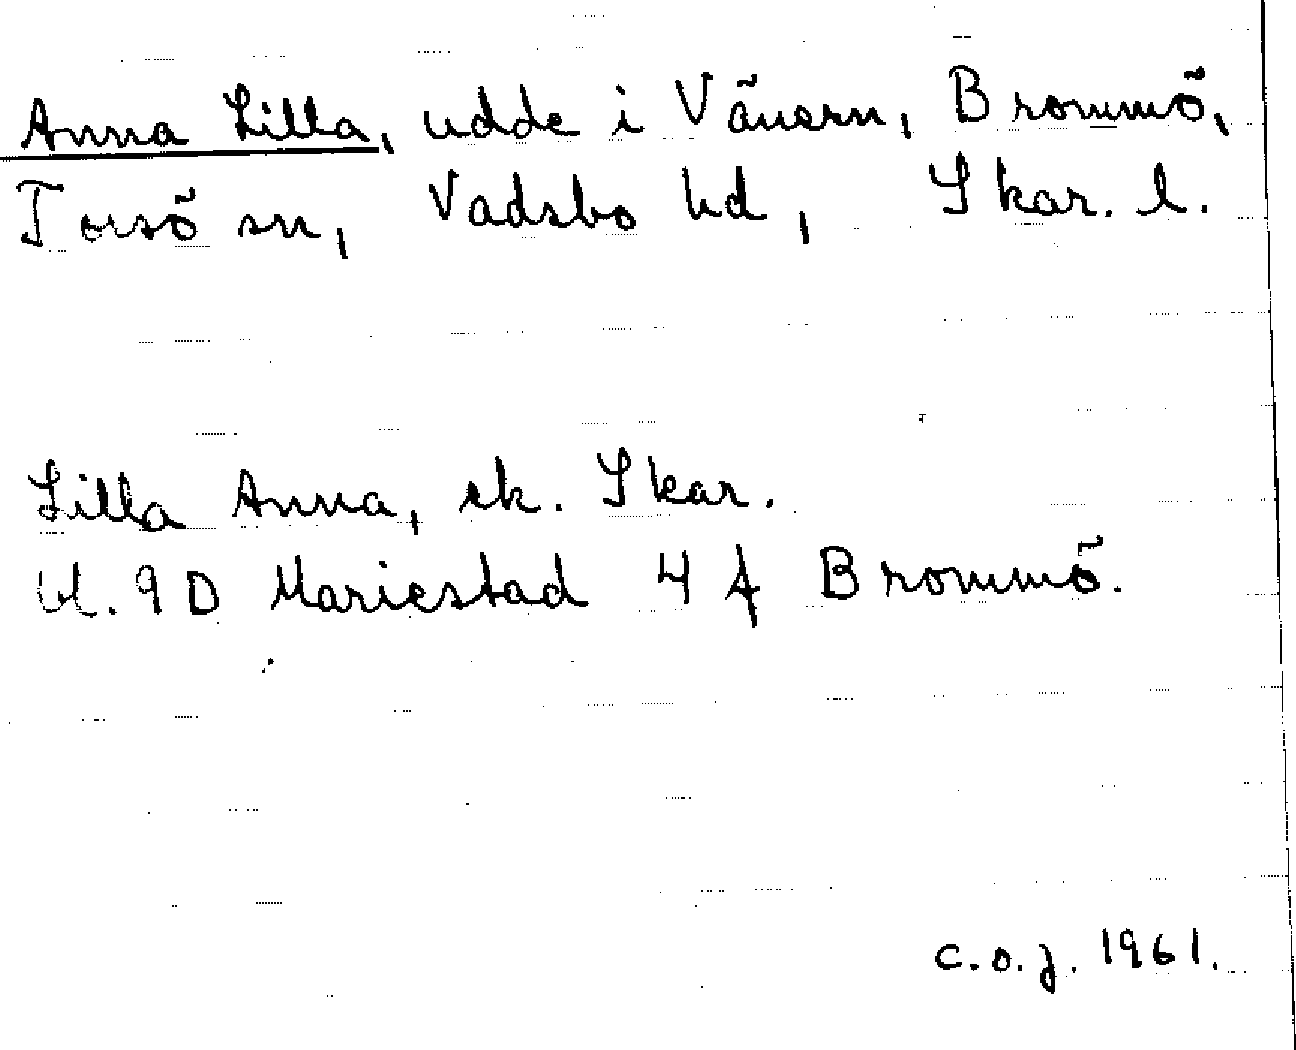 Anna Lilla, udde i Vänern, Brommö,
Torsö sn, Vadsbo hd, Skar. l.
Lilla Anna, ek. Skar.
bl. 9D Mariestad 4 f Brommö.
C.O.J. 1961.